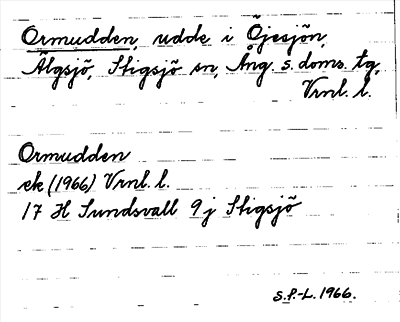 Ormudden, udde i Öjesjön,
Älgsjö, Stigsjö sn, Ång. s. doms. tg,
Vrnl. l.
Ormudden
ek (1966) Vrnl. l.
17 H Sundsvall 9 j Stigsjö
S.P.-L. 1966.